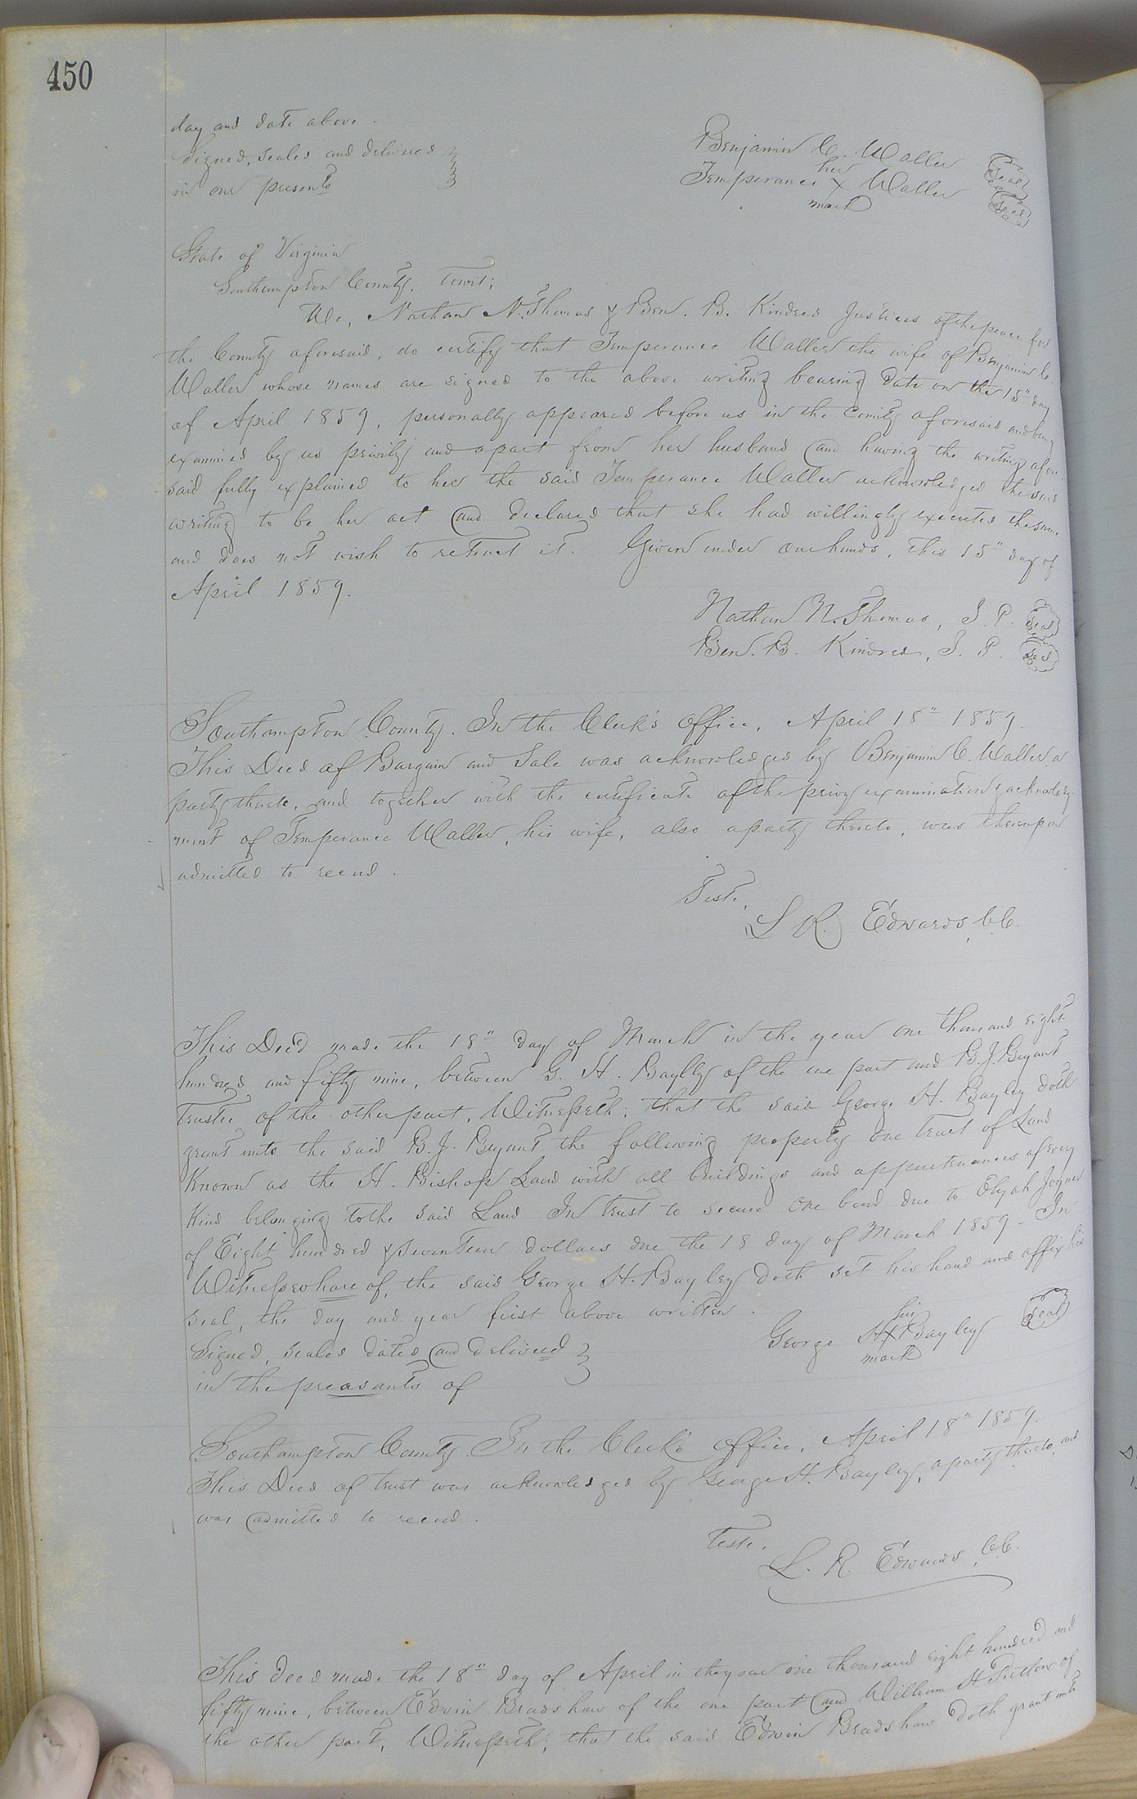 450
day and date above.
Signed, sealed and delivered
in our presents
Benjamin C. Waller Seal
her
Temperance X Waller Seal
mark
State of Virginia
Southampton County, towit;
We, Nathan N. Thomas & Ben. B. Kindred Justices of the peace for
the County aforesaid, do certify that Temperance Waller the wife of Benjamin C.
Waller whose names are signed to the above writing bearing date on the 15" day
of April 1859, personally appeared before us in the County aforesaid and being
examined by us privily and apart from her husband and having the writing afore
said fully explained to her the said Temperance Waller acknowledged the said
writing to be her act and declared that she had willingly executed the same
and does not wish to retract it. Given under our hands, this 15" day of
April 1859.
Nathan N. Thomas, J. P. Seal
Ben. B. Kindred, J. P. Seal
Southampton County. In the Clerk's Office, April 18" 1859.
This Deed of Bargain and Sale was acknowledged by Benjamin C. Waller, a
party thereto, and together with the certificate of the privy examination & acknowledg
ment of Temperance Waller, his wife, also a party thereto, was thereupon
admitted to record.
Teste,
L R. Edwards, C.C.
This Deed made the 18" day of March in the year one thousand eight
hundred and fifty nine, between G. H. Baylly of the one part and B. J. Bryant
trustee of the other part, Witnesseth; that the said George H. Bayley doth
grant unto the said B. J. Bryant the following property one tract of Land
Known as the H. Bishop Land with all buildings and appurtenances of every
Kind belonging to the said Land In trust to secure one bond due to Elijah Joyner
of Eight hundred & Seventeen dollars due the 18 day of March 1859 - In
Witnesswhare of, the said George H. Bayley doth set his hand and affix his
seal, the day and year first above written.
Signed, sealed dated and delivered
in the preasants of
his
George H X Bayley Seal
mark
Southampton County In the Clerk's Office, April 18" 1859.
This Deed of trust was acknowledged by George H. Bayley, a party thereto, and
was admitted to record.
Teste,
L. R. Edwards, C.C.
This deed made the 18" day of April in the year one thousand eight hundred and
fifty nine, between Edwin Bradshaw of the one part and William H. Pretlow of
the other part, Witnesseth; that the said Edwin Bradshaw doth grant unto